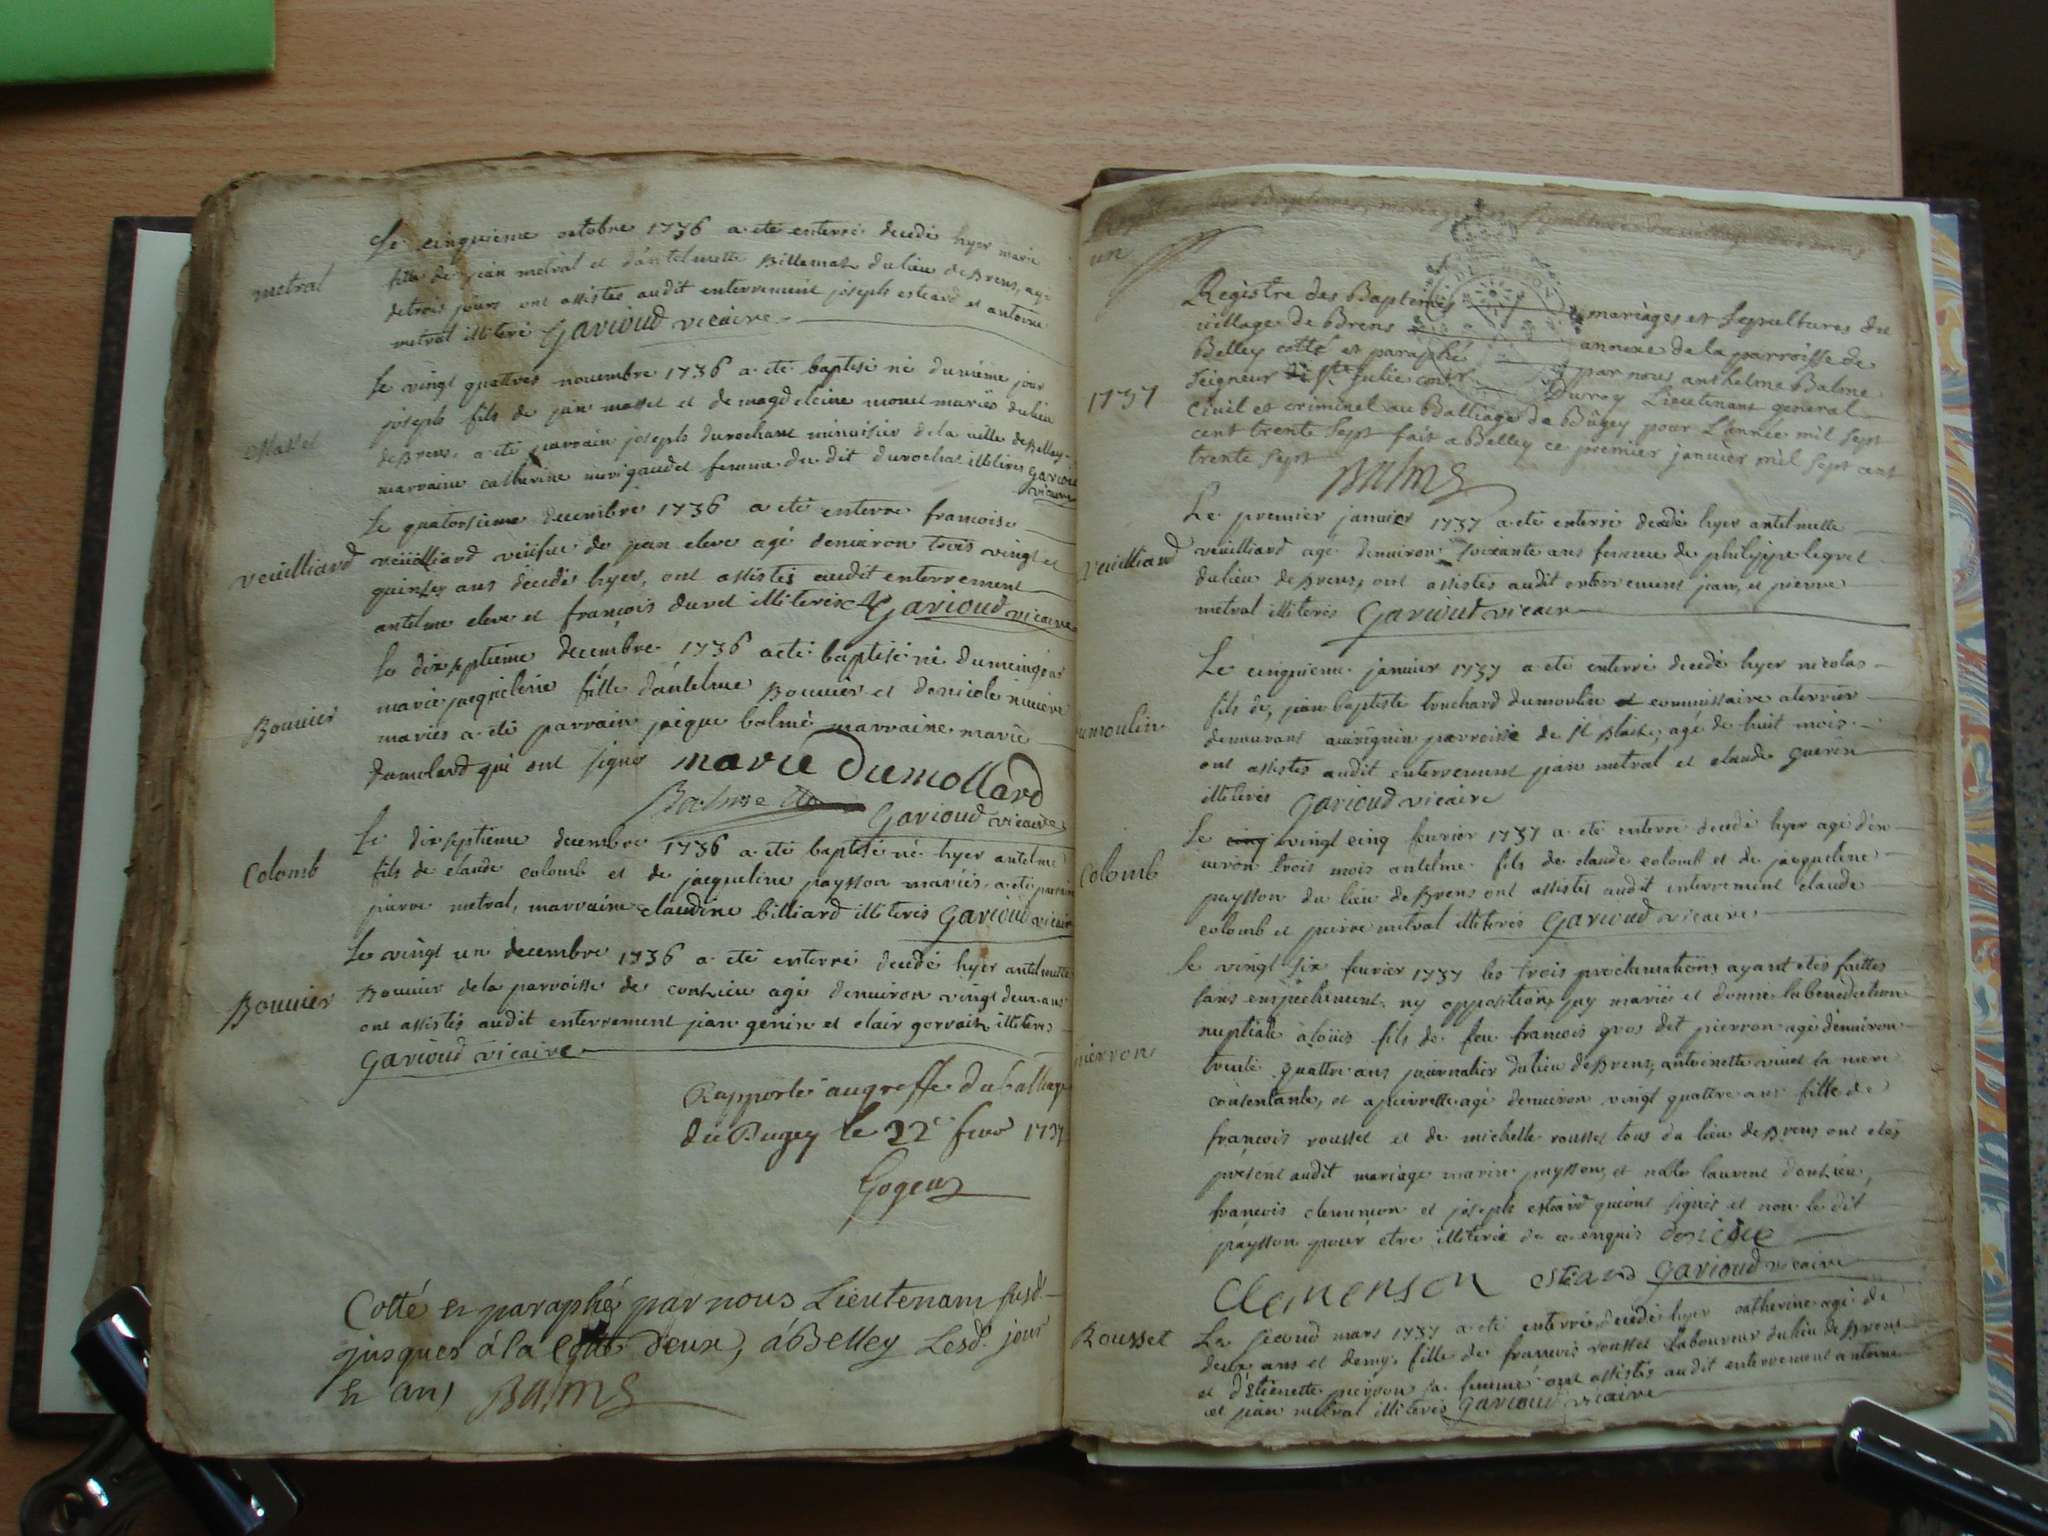 metral
Le cinquieme octobre 1736 a ete enterré decedé hyer marie
fille de jean metral et d'antelmette Billemaz du lieu de Brens, agé
de trois jours ont assistes audit enterrement joseph esteard et antoine
metral illiteré Garioud vicaire
Masset
Le vingt quattres novembre 1736 a eté baptisé né du mème jour
joseph fils de jean masset et de magdeleine monet mariés du lieu
de Brens. a eté parrain joseph durochat minuisier de la ville de Belley
marraine catherine merigaudet femme du dit durochat illiteres Garioud
vicaire
veüilliard
Le quatorsieme decembre 1736 a eté enterré francoise
veüilliard veüfue de jean eleve agé denuiron trois vingt et
quinses ans decedé hyer, ont assistés audit enterrement
antelme eleve et francois duret illiterés Garioud vicaire
Bouuier
Le dixseptieme decembre 1736 a eté baptisé né du meme jour
marie jacqueline fille d'antelme Bouuier et de nicole
mariés a eté parrain jacque balme marraine marie
dumolard qui ont signé marie Dumollard
Balme
Garioud vicaire
Colomb
Le dixseptieme decembre 1736 a eté baptisé né hyer antelme
fils de claude colomb et de jacqueline paysson mariés, a eté parrain
pierre metral, marraine claudine billiard illiterés Garioud vicaire
Bouuier
Le vingt un decembre 1736 a eté enterré decedé hyer antelmette
Bouuier de la parroisse de contrieu agé denuiron vingt deux ans
ont assistés audit enterrement jean genin et clair gervais illiteres
Garioud vicaire
Rapporté au greffe du balliage
du Bugey le 22e feur 1737
Gogeuz
Cotté et paraphé par nous Lieutenant susd.
jusques à la Cotte deux, à Belley Lesd. jour
et an, Balme
Registre des Baptemes, mariages et Sepultures du village de Brens
un
Registre des Baptemes mariages et Sepultures du
village de Brens annexe de la parroisse de
Belley cotté et paraphé par nous anthelme Balme
Seigneur de Ste Julie conr Duroy Lieutenant general
1737
Civil et criminel au Balliage de Bûgey pour L'année mil sept
cent trente sept fait a Belley ce premier janvier mil sept cent
trente sept
Balme
veüilliard
Le premier janvier 1737 a eté enterré decedé hyer antelmette
veüilliard agé denuiron soixante ans femme de philippe legret
du lieu de Brens, ont assistes audit enterrement jean, et pierre
metral illiterés Garioud vicaire
umoulin
Le cinquieme janvier 1737 a eté enterré decedé hyer nicolas
fils de jean baptiste truchard dumoulin commissaire a terrier
demeurant auirignin parroisse de st Blaise, agé de huit mois
ont assistes audit enterrement jean metral et claude guerin
illiterés Garioud vicaire
Colomb
Le cinq vingt cinq feurier 1737 a eté enterré decedé hyer agé d'en
uiron trois mois antelme fils de claude colomb et de jacqueline
paysson du lieu de Brens ont assistes audit enterrement claude
colomb et peirre metral illiterés Garioud vicaire
pierron
Le vingt six feurier 1737 les trois proclamations ayant etés faittes
sans empechement ny opposition, jay marié et donné la benediction
nuptiale à loüis fils de feu francois gros dit pierron agé denuiron
trente quattre ans journalier du lieu de Brens, antoinette uinet sa mere
consentante, et a pierrette agé denuiron vingt quattre ans fille de
francois rousset et de michelle rousset tous du lieu de Brens ont etés
présent audit mariage marin paysson, et noble laurent donsieu,
francois clemenson et joseph esteard qui ont signés et non le dit
paysson pour etre illiteré de ce enquis donsieu
Clemenson esteard Garioud vicaire
Rousset
Le second mars 1737 a eté enterré, decedé hyer catherine agé de
deux ans et demy, fille de francois rousset laboureur du lieu de Brens
et d'étienette peysson sa femme ont assistes audit enterrement antoine
et jean metral illiterés Garioud vicaire